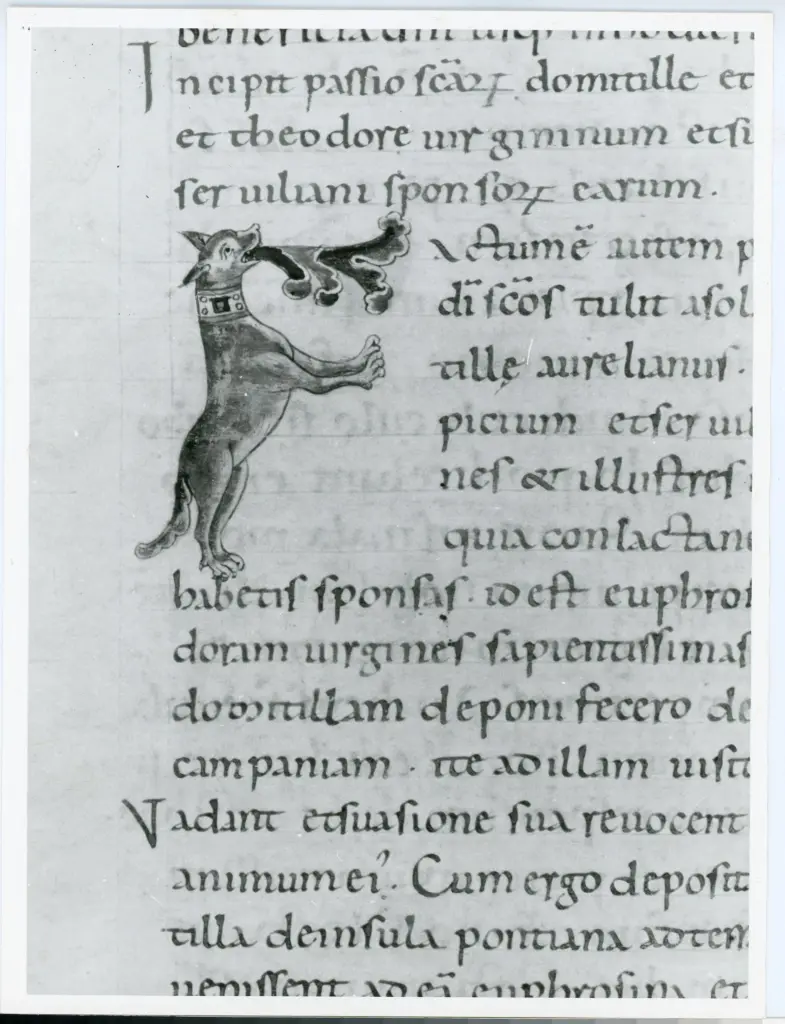 Incipit passio scāꝝ domitille et
et theodore uirginum etsi
ser uiliani sponsoꝝ earum.
Factumē autem p
di scōs tulit asol
tille aurelianus.
picium etseruil
nes & illustres
quia conlactane
habetis sponsas. id est euphros
doram uirgines sapientissimas
domitillam deponi fecero de
campaniam. ite ad illam uisit
Vadant etsuasione sua reuocent
animum ei'. Cum ergo deposit
tilla deinsula pontiana adterr
uenissent ad eā euphrosina et